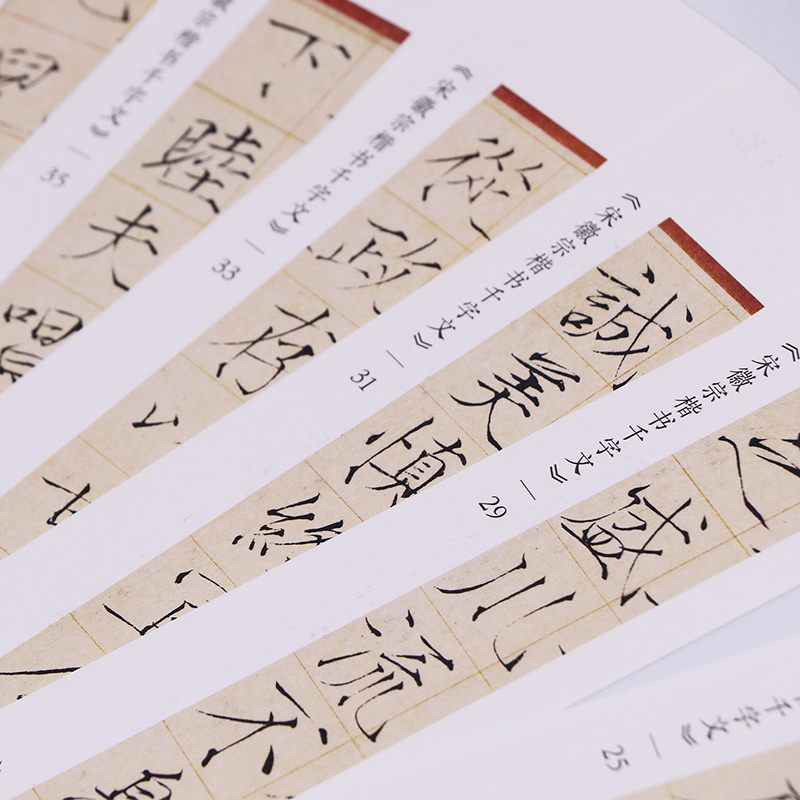 徽宗楷书千字文》— 35
下睦夫唱
《宋徽宗楷书千字文》— 33
從政存以甘
《宋徽宗楷书千字文》— 31
誠美慎終宜令
《宋徽宗楷书千字文》— 29
之盛川流不息
千字文》— 25